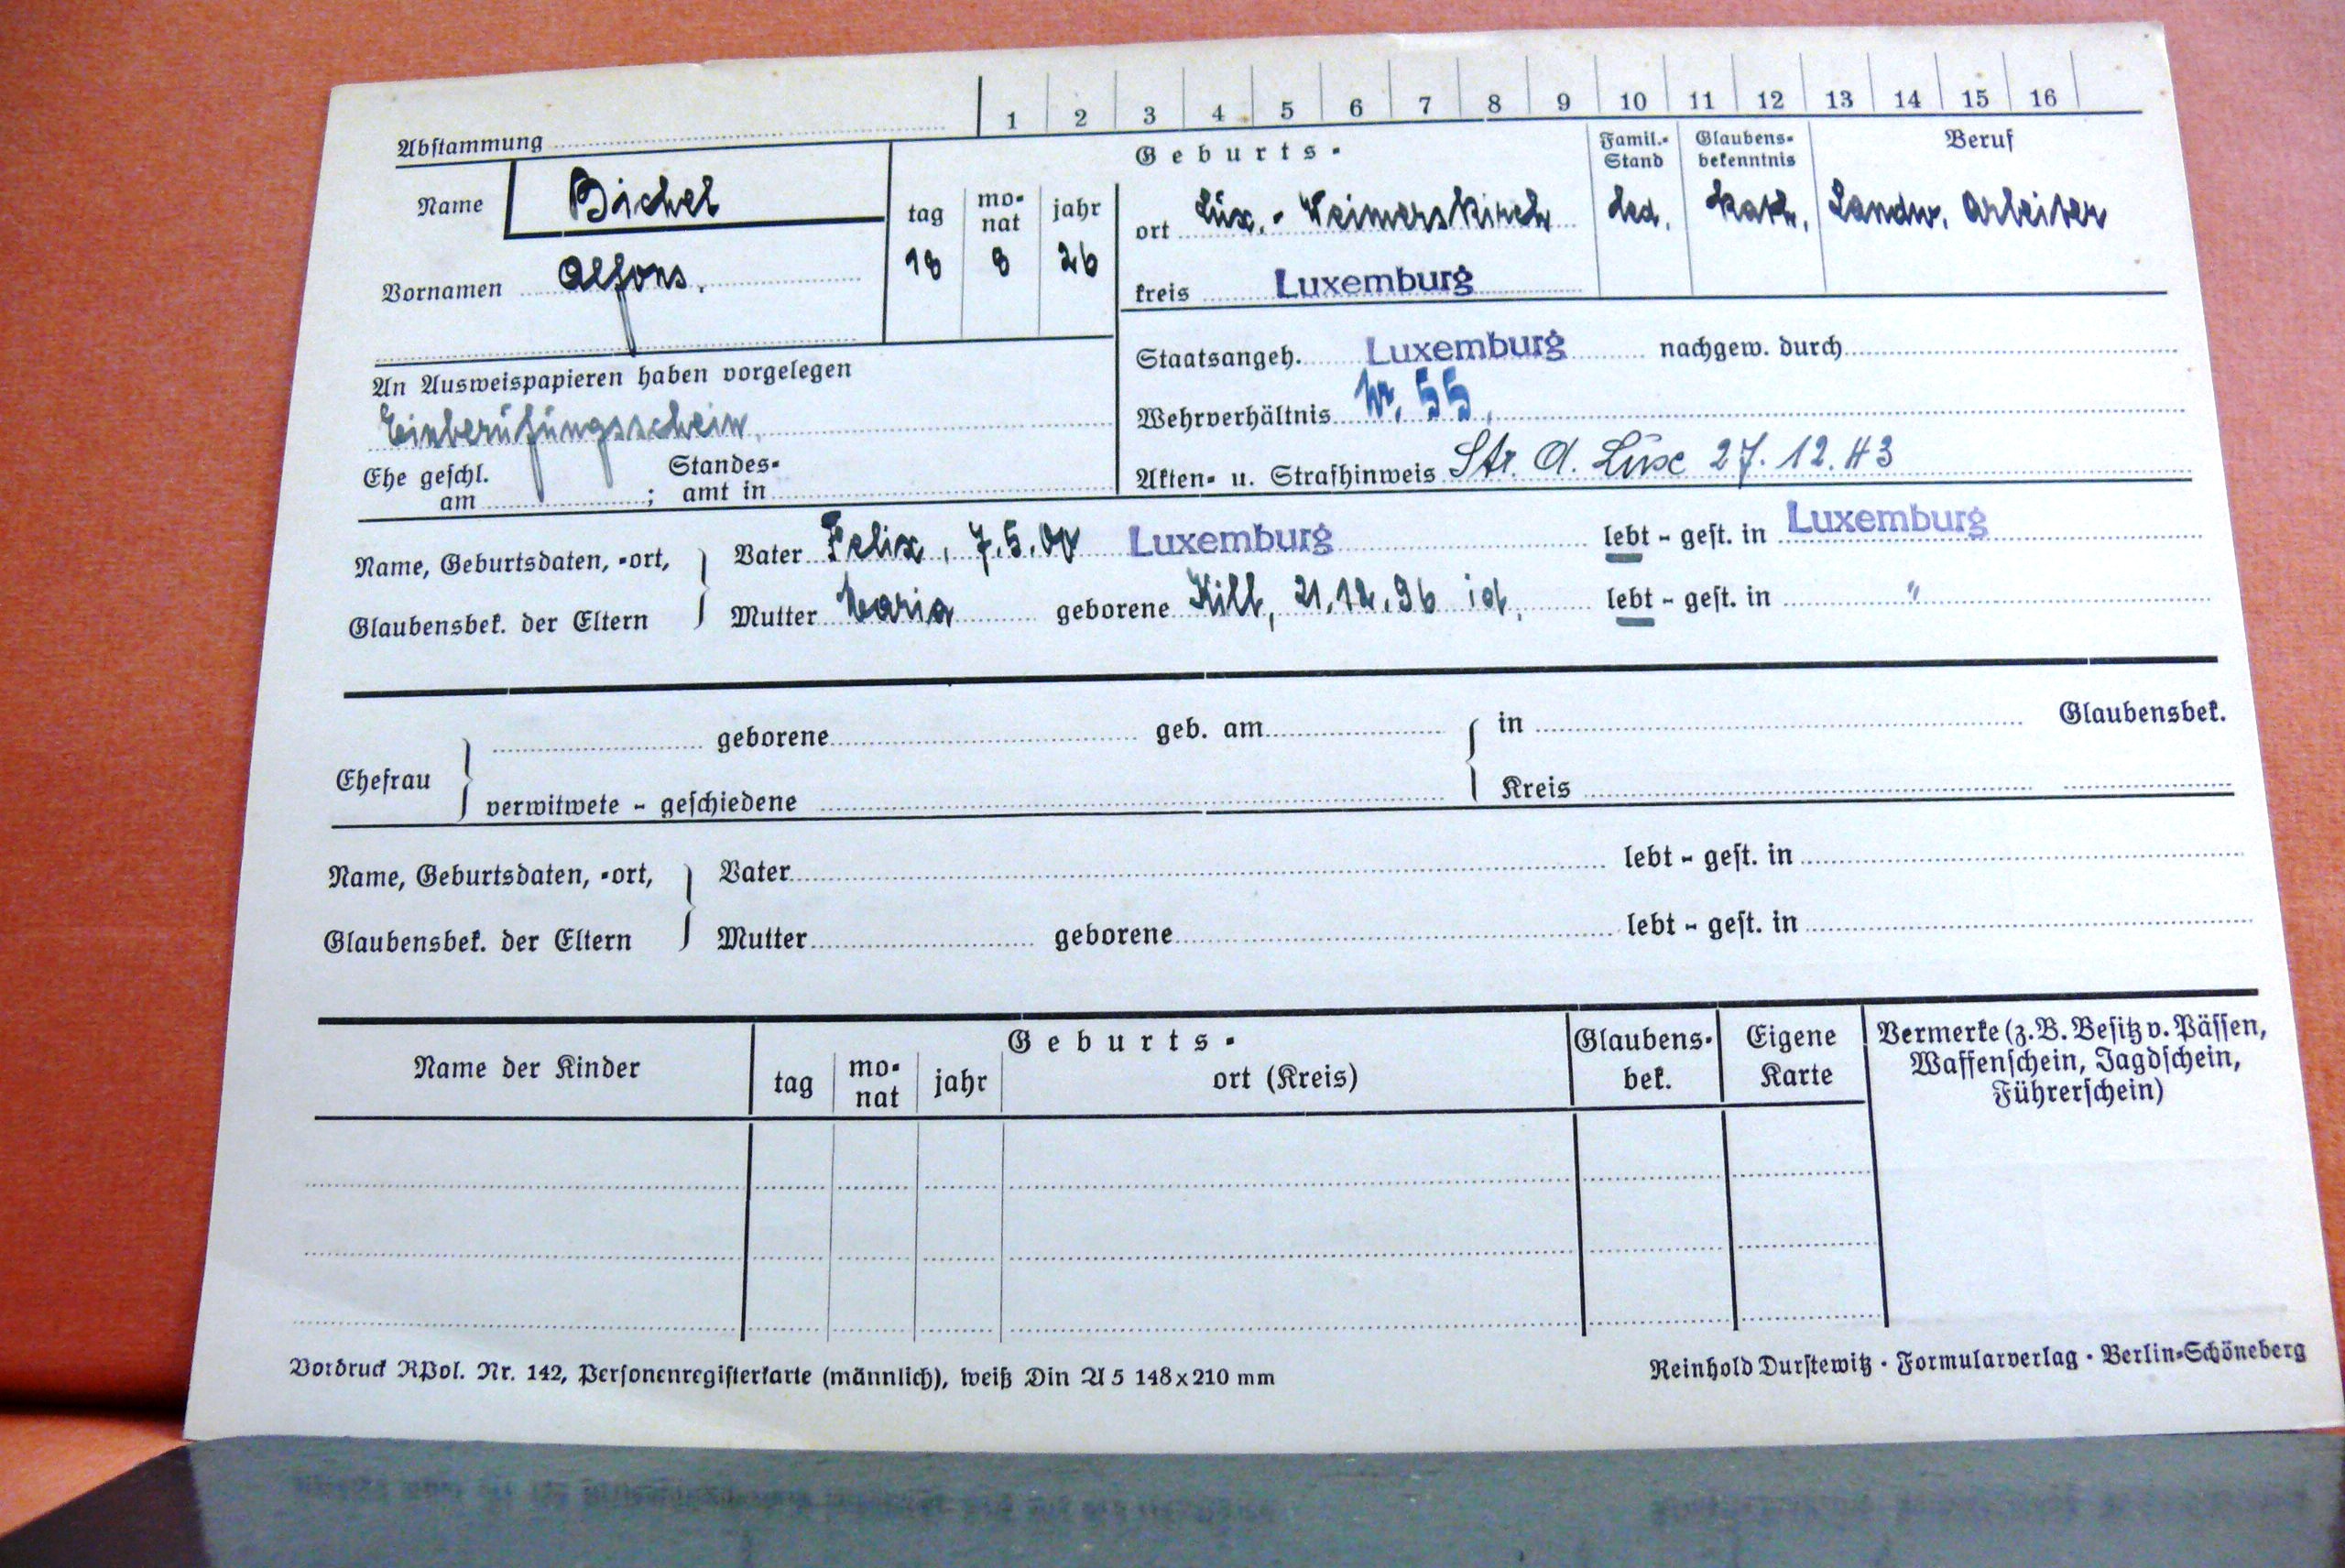 1 2 3 4 5 6 7 8 9 10 11 12 13 14 15 16
Abstammung
Name Bichel
Vornamen Alfons.
Geburts-
tag monat jahr
18 8 26
ort Lux.-Weimerskirch
kreis Luxemburg
Famil.-Stand led.
Glaubensbekenntnis kath.
Beruf Landw. Arbeiter
An Ausweispapieren haben vorgelegen
Einberufungsschein.
Ehe geschl. am ; Standesamt in
Staatsangeh. Luxemburg nachgew. durch
Wehrverhältnis W. 55.
Akten- u. Strafhinweis Str. A. Lux 27.12.43
Name, Geburtsdaten, -ort,
Glaubensbek. der Eltern
Vater Felix, 7.5.00 Luxemburg lebt - gest. in Luxemburg
Mutter Maria geborene Kill, 21.12.96 id. lebt - gest. in "
Ehefrau
geborene geb. am in Glaubensbek.
verwitwete - geschiedene Kreis
Name, Geburtsdaten, -ort,
Glaubensbek. der Eltern
Vater lebt - gest. in
Mutter geborene lebt - gest. in
Name der Kinder
Geburts-
tag monat jahr ort (Kreis)
Glaubensbek.
Eigene Karte
Vermerke (z.B. Besitz v. Pässen,
Waffenschein, Jagdschein,
Führerschein)
Vordruck RPol. Nr. 142, Personenregisterkarte (männlich), weiß Din A 5 148x210 mm
Reinhold Durstewitz · Formularverlag · Berlin-Schöneberg